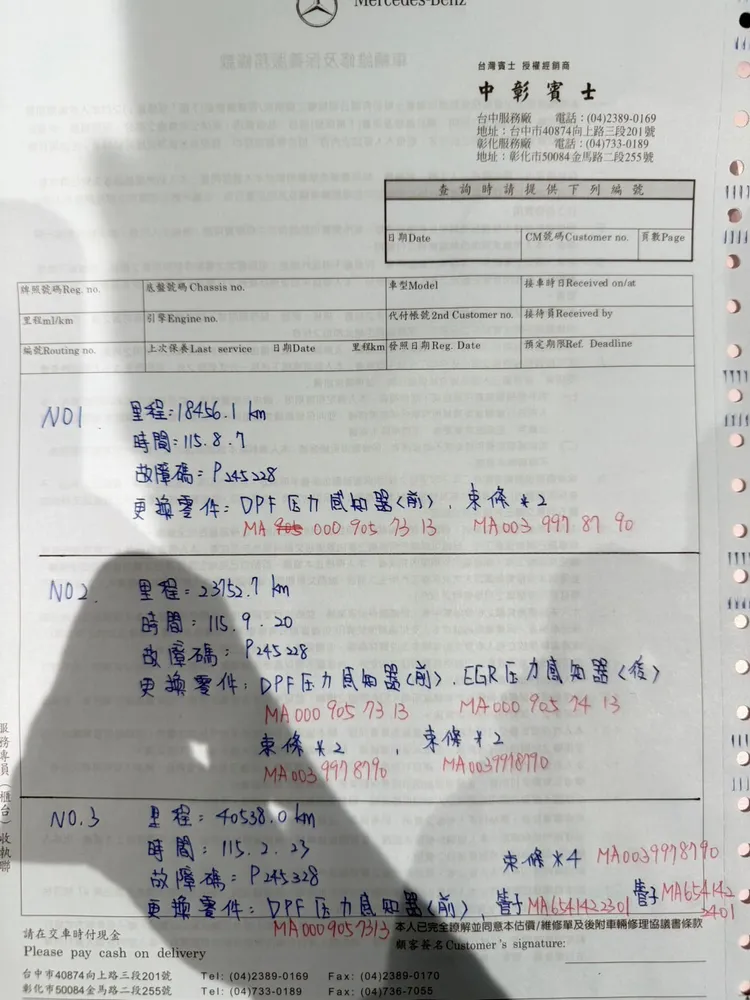 Mercedes-Benz
台灣賓士 授權經銷商
中彰賓士
台中服務廠 電話：(04)2389-0169
地址：台中市40874向上路三段201號
彰化服務廠 電話：(04)733-0189
地址：彰化市50084金馬路二段255號
查詢時請提供下列編號
日期Date CM號碼Customer no. 頁數Page
牌照號碼Reg. no. 底盤號碼Chassis no. 車型Model 接車時日Received on/at
里程ml/km 引擎Engine no. 代付帳號2nd Customer no. 接待員Received by
編號Routing no. 上次保養Last service 日期Date 里程km 發照日期Reg. Date 預定期限Ref. Deadline
NO1. 里程:18456.1 km
時間:115.8.7
故障碼:P245228
更換零件:DPF压力感知器(前)、束條*2
MA 905 000 905 73 13 MA003 997 87 90
NO2. 里程:23752.7 km
時間:115.9.20
故障碼:P245228
更換零件:DPF压力感知器(前)、EGR压力感知器(後)
MA000 905 73 13 MA000 905 74 13
束條*2、束條*2
MA003 997 8790 MA0039978790
NO.3 里程:40538.0 km
時間:115.2.23
束條*4 MA0039978790
故障碼:P245328
更換零件:DPF压力感知器(前)、管子MA6541422301 管子MA654142
3401
MA0009057313
服務專員(櫃台)收執聯
本人已完全瞭解並同意本估價/維修單及後附車輛修理協議書條款
請在交車時付現金
Please pay cash on delivery
顧客簽名Customer's signature:
台中市40874向上路三段201號 Tel: (04)2389-0169 Fax: (04)2389-0170
彰化市50084金馬路二段255號 Tel: (04)733-0189 Fax: (04)736-7055